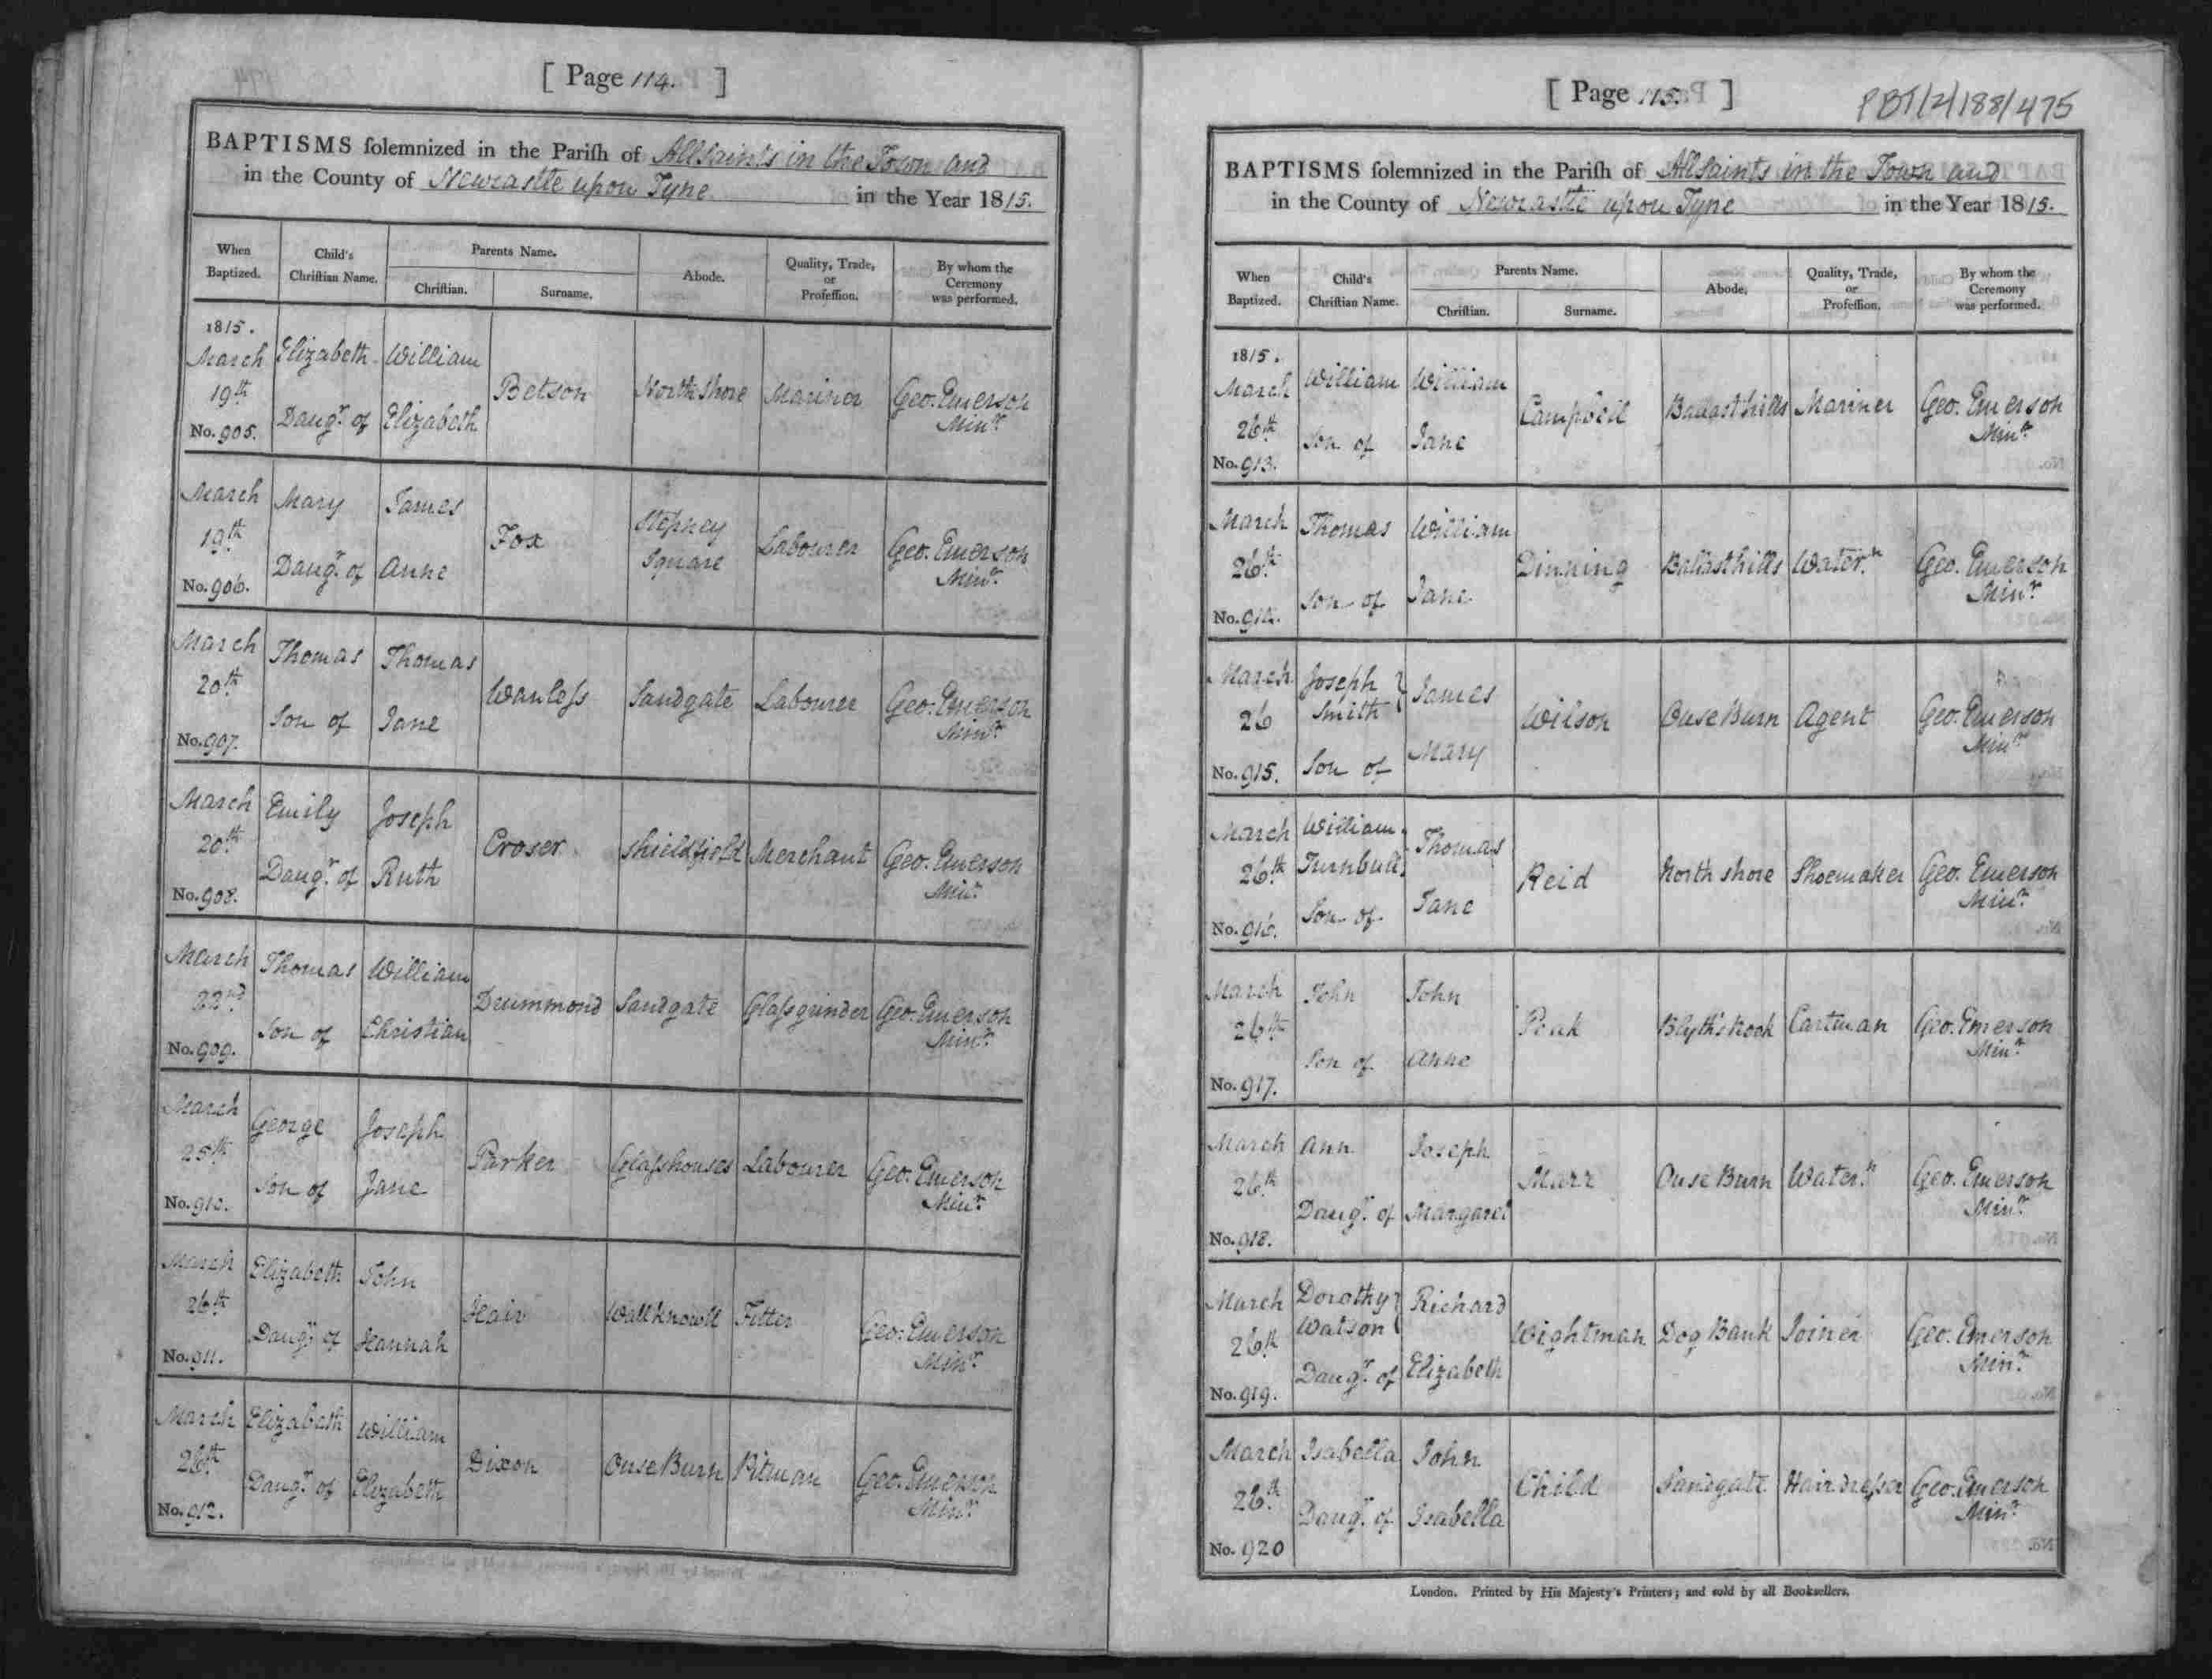 [ Page 114. ]
BAPTISMS solemnized in the Parish of All Saints in the Town and
in the County of Newcastle upon Tyne in the Year 1815.
When Baptized. Child's Christian Name. Parents Name. Christian. Surname. Abode. Quality, Trade, or Profession. By whom the Ceremony was performed.
1815.
March Elizabeth William
19th Betson North Shore Mariner Geo. Emerson
Daugr. of Elizabeth Minr.
No. 905.
March Mary James
19th Fox Stepney Square Labourer Geo. Emerson
Daugr. of Anne Minr.
No. 906.
March Thomas Thomas
20th Wanless Sandgate Labourer Geo. Emerson
Son of Jane Minr.
No. 907.
March Emily Joseph
20th Croser Shieldfield Merchant Geo. Emerson
Daugr. of Ruth Minr.
No. 908.
March Thomas William
22nd Drummond Sandgate Glassgrinder Geo. Emerson
Son of Christian Minr.
No. 909.
March George Joseph
25th Parker Glasshouses Labourer Geo. Emerson
Son of Jane Minr.
No. 910.
March Elizabeth John
26th Hair Wallknowll Fitter Geo. Emerson
Daugr. of Hannah Minr.
No. 911.
March Elizabeth William
26th Dixon Ouse Burn Pitman Geo. Emerson
Daugr. of Elizabeth Minr.
No. 912.
[ Page 115. ]
PBT/2/188/475
BAPTISMS solemnized in the Parish of All Saints in the Town and
in the County of Newcastle upon Tyne in the Year 1815.
When Baptized. Child's Christian Name. Parents Name. Christian. Surname. Abode. Quality, Trade, or Profession. By whom the Ceremony was performed.
1815.
March William William
26th Campbell Ballast hills Mariner Geo. Emerson
Son of Jane Minr.
No. 913.
March Thomas William
26th Dinning Ballast hills Watern. Geo. Emerson
Son of Jane Minr.
No. 914.
March Joseph Smith James
26 Wilson Ouse Burn Agent Geo. Emerson
Son of Mary Minr.
No. 915.
March William Turnbull Thomas
26th Reid North Shore Shoemaker Geo. Emerson
Son of Jane Minr.
No. 916.
March John John
26th Peak Blyth's Nook Cartman Geo. Emerson
Son of Anne Minr.
No. 917.
March Ann Joseph
26th Marr Ouse Burn Watern. Geo. Emerson
Daugr. of Margaret Minr.
No. 918.
March Dorothy Watson Richard
26th Wightman Dog Bank Joiner Geo. Emerson
Daugr. of Elizabeth Minr.
No. 919.
March Isabella John
26th Child Sandgate Hairdresser Geo. Emerson
Daugr. of Isabella Minr.
No. 920
London. Printed by His Majesty's Printers; and sold by all Booksellers.